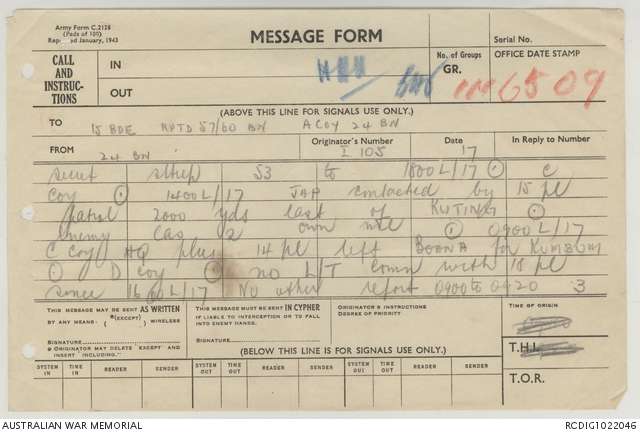 Army Form C.2128
(Pads of 100)
January, 1943
MESSAGE FORM
Serial No.
CALL AND INSTRUCTIONS
IN
OUT
No. of Groups
GR.
OFFICE DATE STAMP
IN 6509
(ABOVE THIS LINE FOR SIGNALS USE ONLY.)
TO 15 BDE RPTD 57/60 BN A COY 24 BN
FROM 24 BN
Originator's Number I 105
Date 17
In Reply to Number
secret sitrep 53 to 1800L/17 . C
Coy . 1400L/17 JAP contacted by 15 pl
patrol 2000 yds east of KUTING .
enemy cas 2 own nil . 0900L/17
C Coy HQ plus 14 pl left for KUMBUM
. D Coy . no L/T comn with 18 pl
since 1600L/17 No other report 0900 to 0920 3
THIS MESSAGE MAY BE SENT AS WRITTEN
BY ANY MEANS. (EXCEPT) WIRELESS
Signature
ORIGINATOR MAY DELETE EXCEPT AND INSERT INCLUDING."
THIS MESSAGE MUST BE SENT IN CYPHER
IF LIABLE TO INTERCEPTION OR TO FALL INTO ENEMY HANDS.
Signature
ORIGINATOR'S INSTRUCTIONS
DEGREE OF PRIORITY
TIME OF ORIGIN
T.H.I.
T.O.R.
(BELOW THIS LINE IS FOR SIGNALS USE ONLY.)
SYSTEM IN TIME IN READER SENDER SYSTEM OUT TIME OUT READER SENDER SYSTEM OUT TIME OUT READER SENDER
AUSTRALIAN WAR MEMORIAL
RCDIG1022046